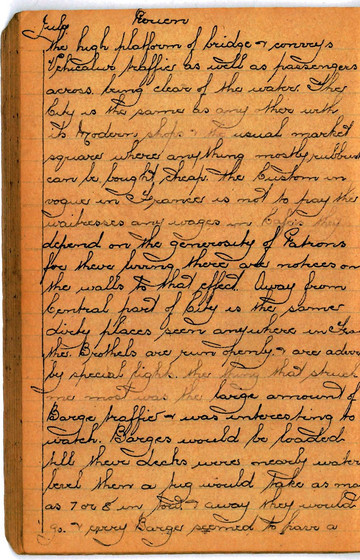 July Rouen
the high platform of bridge & conveys
Vehicular traffic as well as passengers
across. being clear of the water. The
City is the same as any other with
its Modern shops & the usual market
square where anything mostly rubbish
can be bought cheap. the Custom in
vogue in France is not to pay the
waitresses any wages in Cafes they
depend on the generosity of Patrons
for there living there are notices on
the walls to that effect. Away from
Central part of City is the same
dirty places seen anywhere in Fra
the Brothels are run openly & are adver
by special lights. the thing that struck
me most was the large amount of
Barge traffic & was interesting to
watch. Barges would be loaded
till there decks were nearly water
level then a tug would take as ma
as 7 or 8 in tow & away they would
go. & every Barge seemed to have a